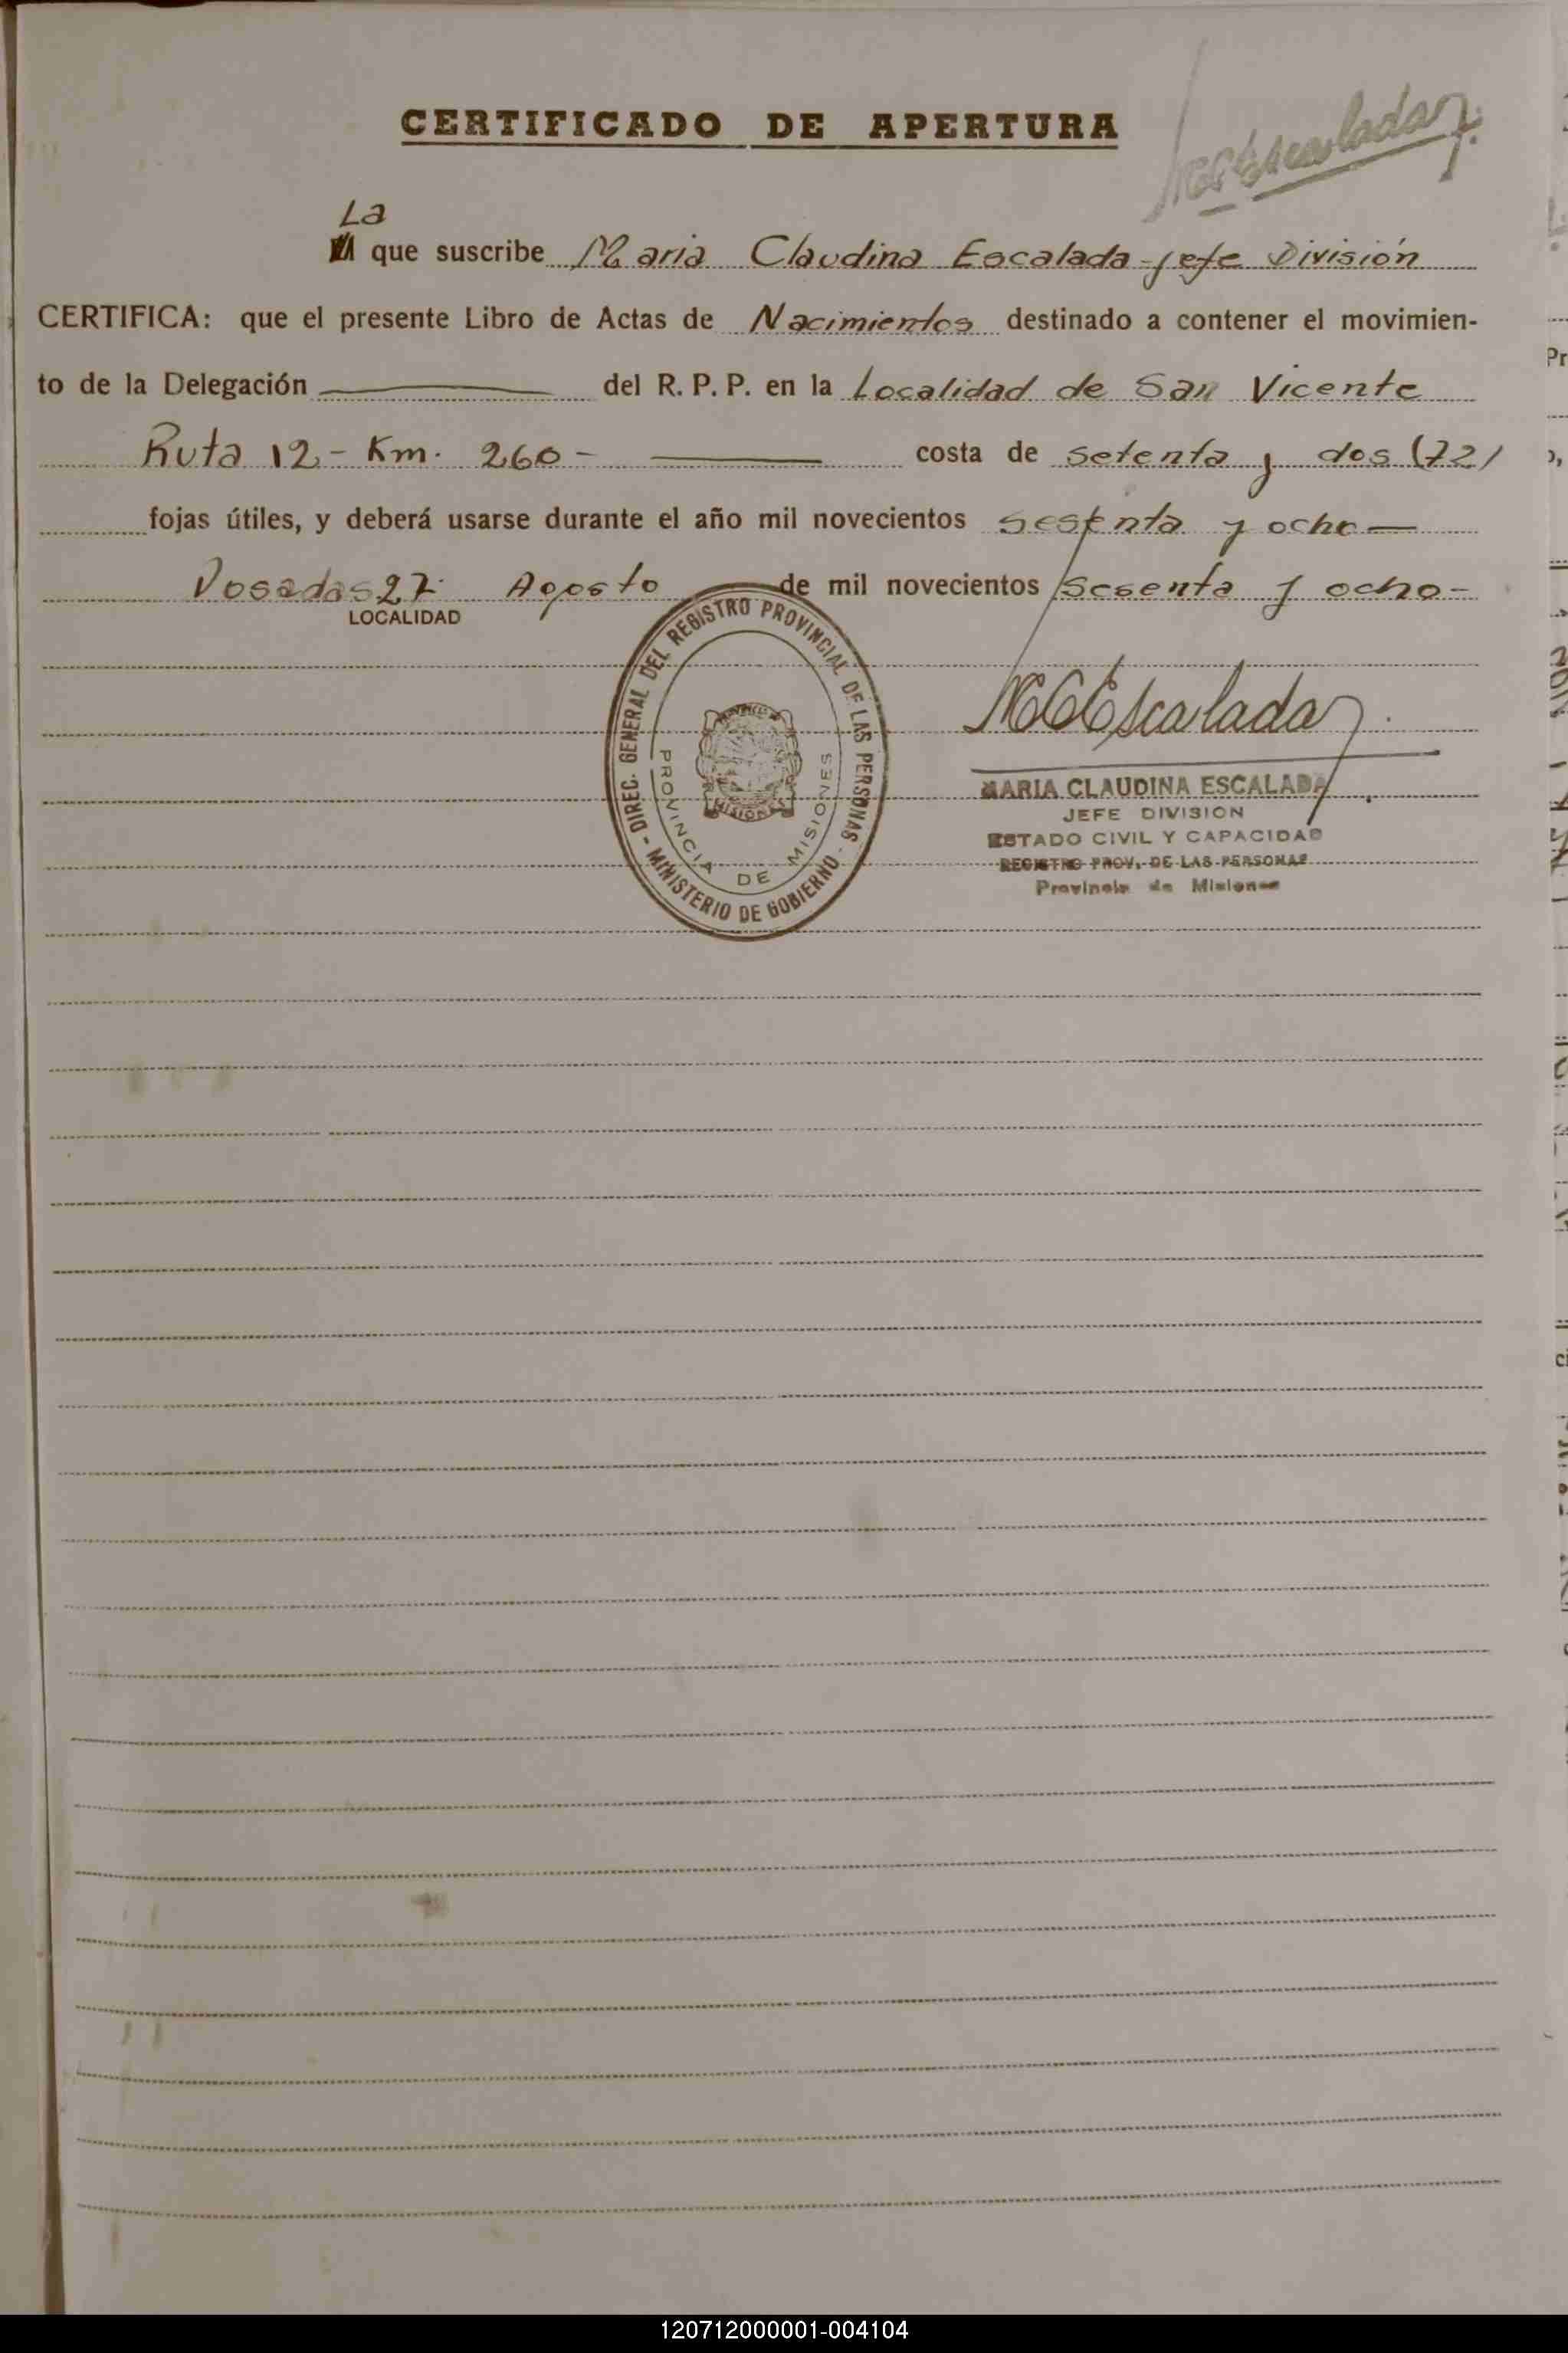 CERTIFICADO DE APERTURA
MCEscalada
La
que suscribe Maria Claudina Escalada - jefe División
CERTIFICA: que el presente Libro de Actas de Nacimientos destinado a contener el movimien-
to de la Delegación del R. P. P. en la Localidad de San Vicente
Ruta 12 - Km. 260 - costa de setenta y dos (72)
fojas útiles, y deberá usarse durante el año mil novecientos sesenta y ocho
Posadas 27 Agosto de mil novecientos sesenta y ocho -
LOCALIDAD
DIREC. GENERAL DEL REGISTRO PROVINCIAL DE LAS PERSONAS - MINISTERIO DE GOBIERNO -
PROVINCIA DE MISIONES
MISIONES
MCEscalada
MARIA CLAUDINA ESCALADA
JEFE DIVISION
ESTADO CIVIL Y CAPACIDAD
REGISTRO PROV. DE LAS PERSONAS
Provincia de Misiones
120712000001-004104